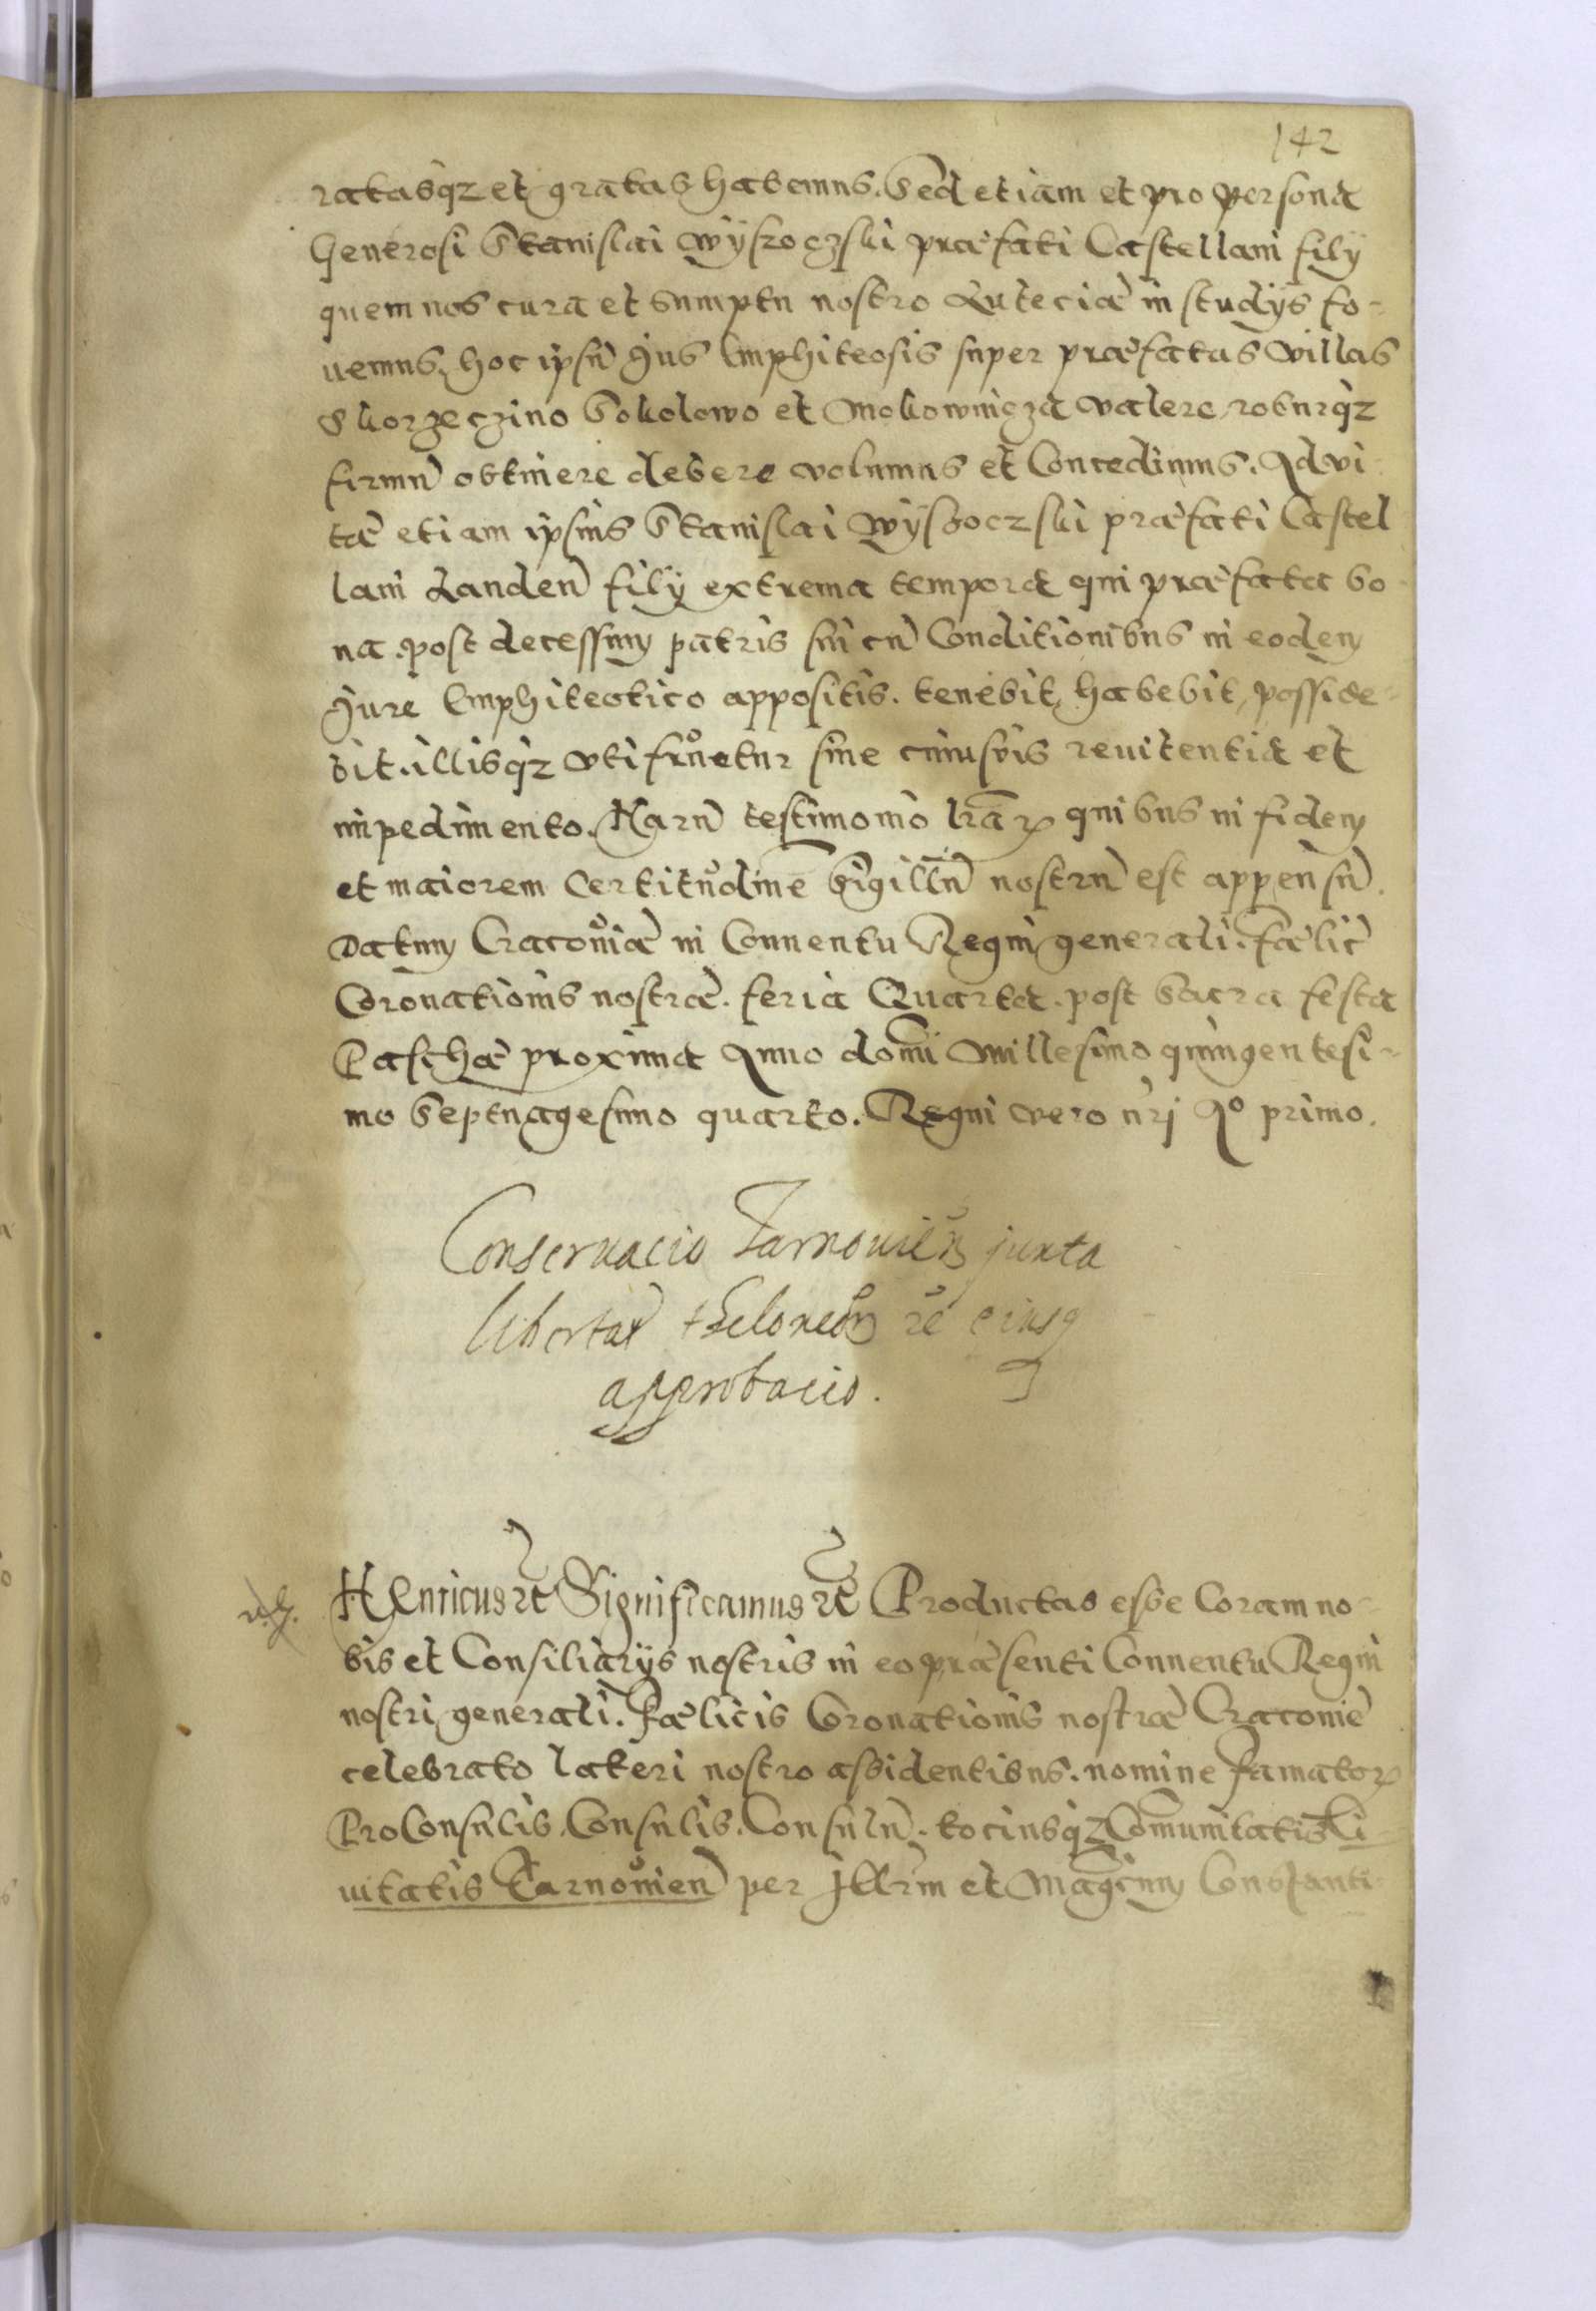 142
ratasqz et gratas habemus. Sed etiam et pro persona
Generosi Stanislai Wÿszoczski præfati Castellani filÿ
quem nos cura et sumptu nostro Luteciæ in studÿs fo-
uemus, hoc ipsũ Jus Emphiteosis super præfatas villas
Skorzeczino Sokolowo et Mokownicza valere, roburqz
firmũ obtinere debere volumus et Concedimus. Ad vi-
tæ etiam ipsius Stanislai Wÿsoczski præfati Castel
lani Landeñ filÿ extrema tempora qui præfata bo-
na post decessum patris sui cũ Conditionibus in eodem
Jure Emphiteotico appositis. tenebit, habebit, posside-
bit. illisqz vti fruetur sine cuiusuis renitentia et
impedimento. Harũ testimonio lrãꝝ quibus in fidem
et maiorem Certitudinẽ Sigillũ nostrũ est appensũ.
Datum Cracouiæ in Conuentu Regni generali. fælic̃
Coronationis nostræ. feria Quarta post Sacra festa
Paschæ proxima Anno domĩ Millesimo quingentesi-
mo Septuagesimo quarto. Regni vero ñrj Aº primo.
Conservacio Tarnouieñ juxta
libertat̃ theloneoꝝ
approbacio.
HEnricus ꝛc̃ Significamus ꝛc̃ Productas esse Coram no-
bis et Consiliarÿs nostris in eo præsenti Conuentu Regni
nostri generali. Fælicis Coronationis nostræ Cracouiẽ
celebrato lateri nostro assidentibus. nomine famatoꝝ
ProConsulis. Consulis. Consulũ. tociusqz Cõmunitatis Ci-
uitatis Tarnouieñ per Jllrm̃ et Magcum Constanti-